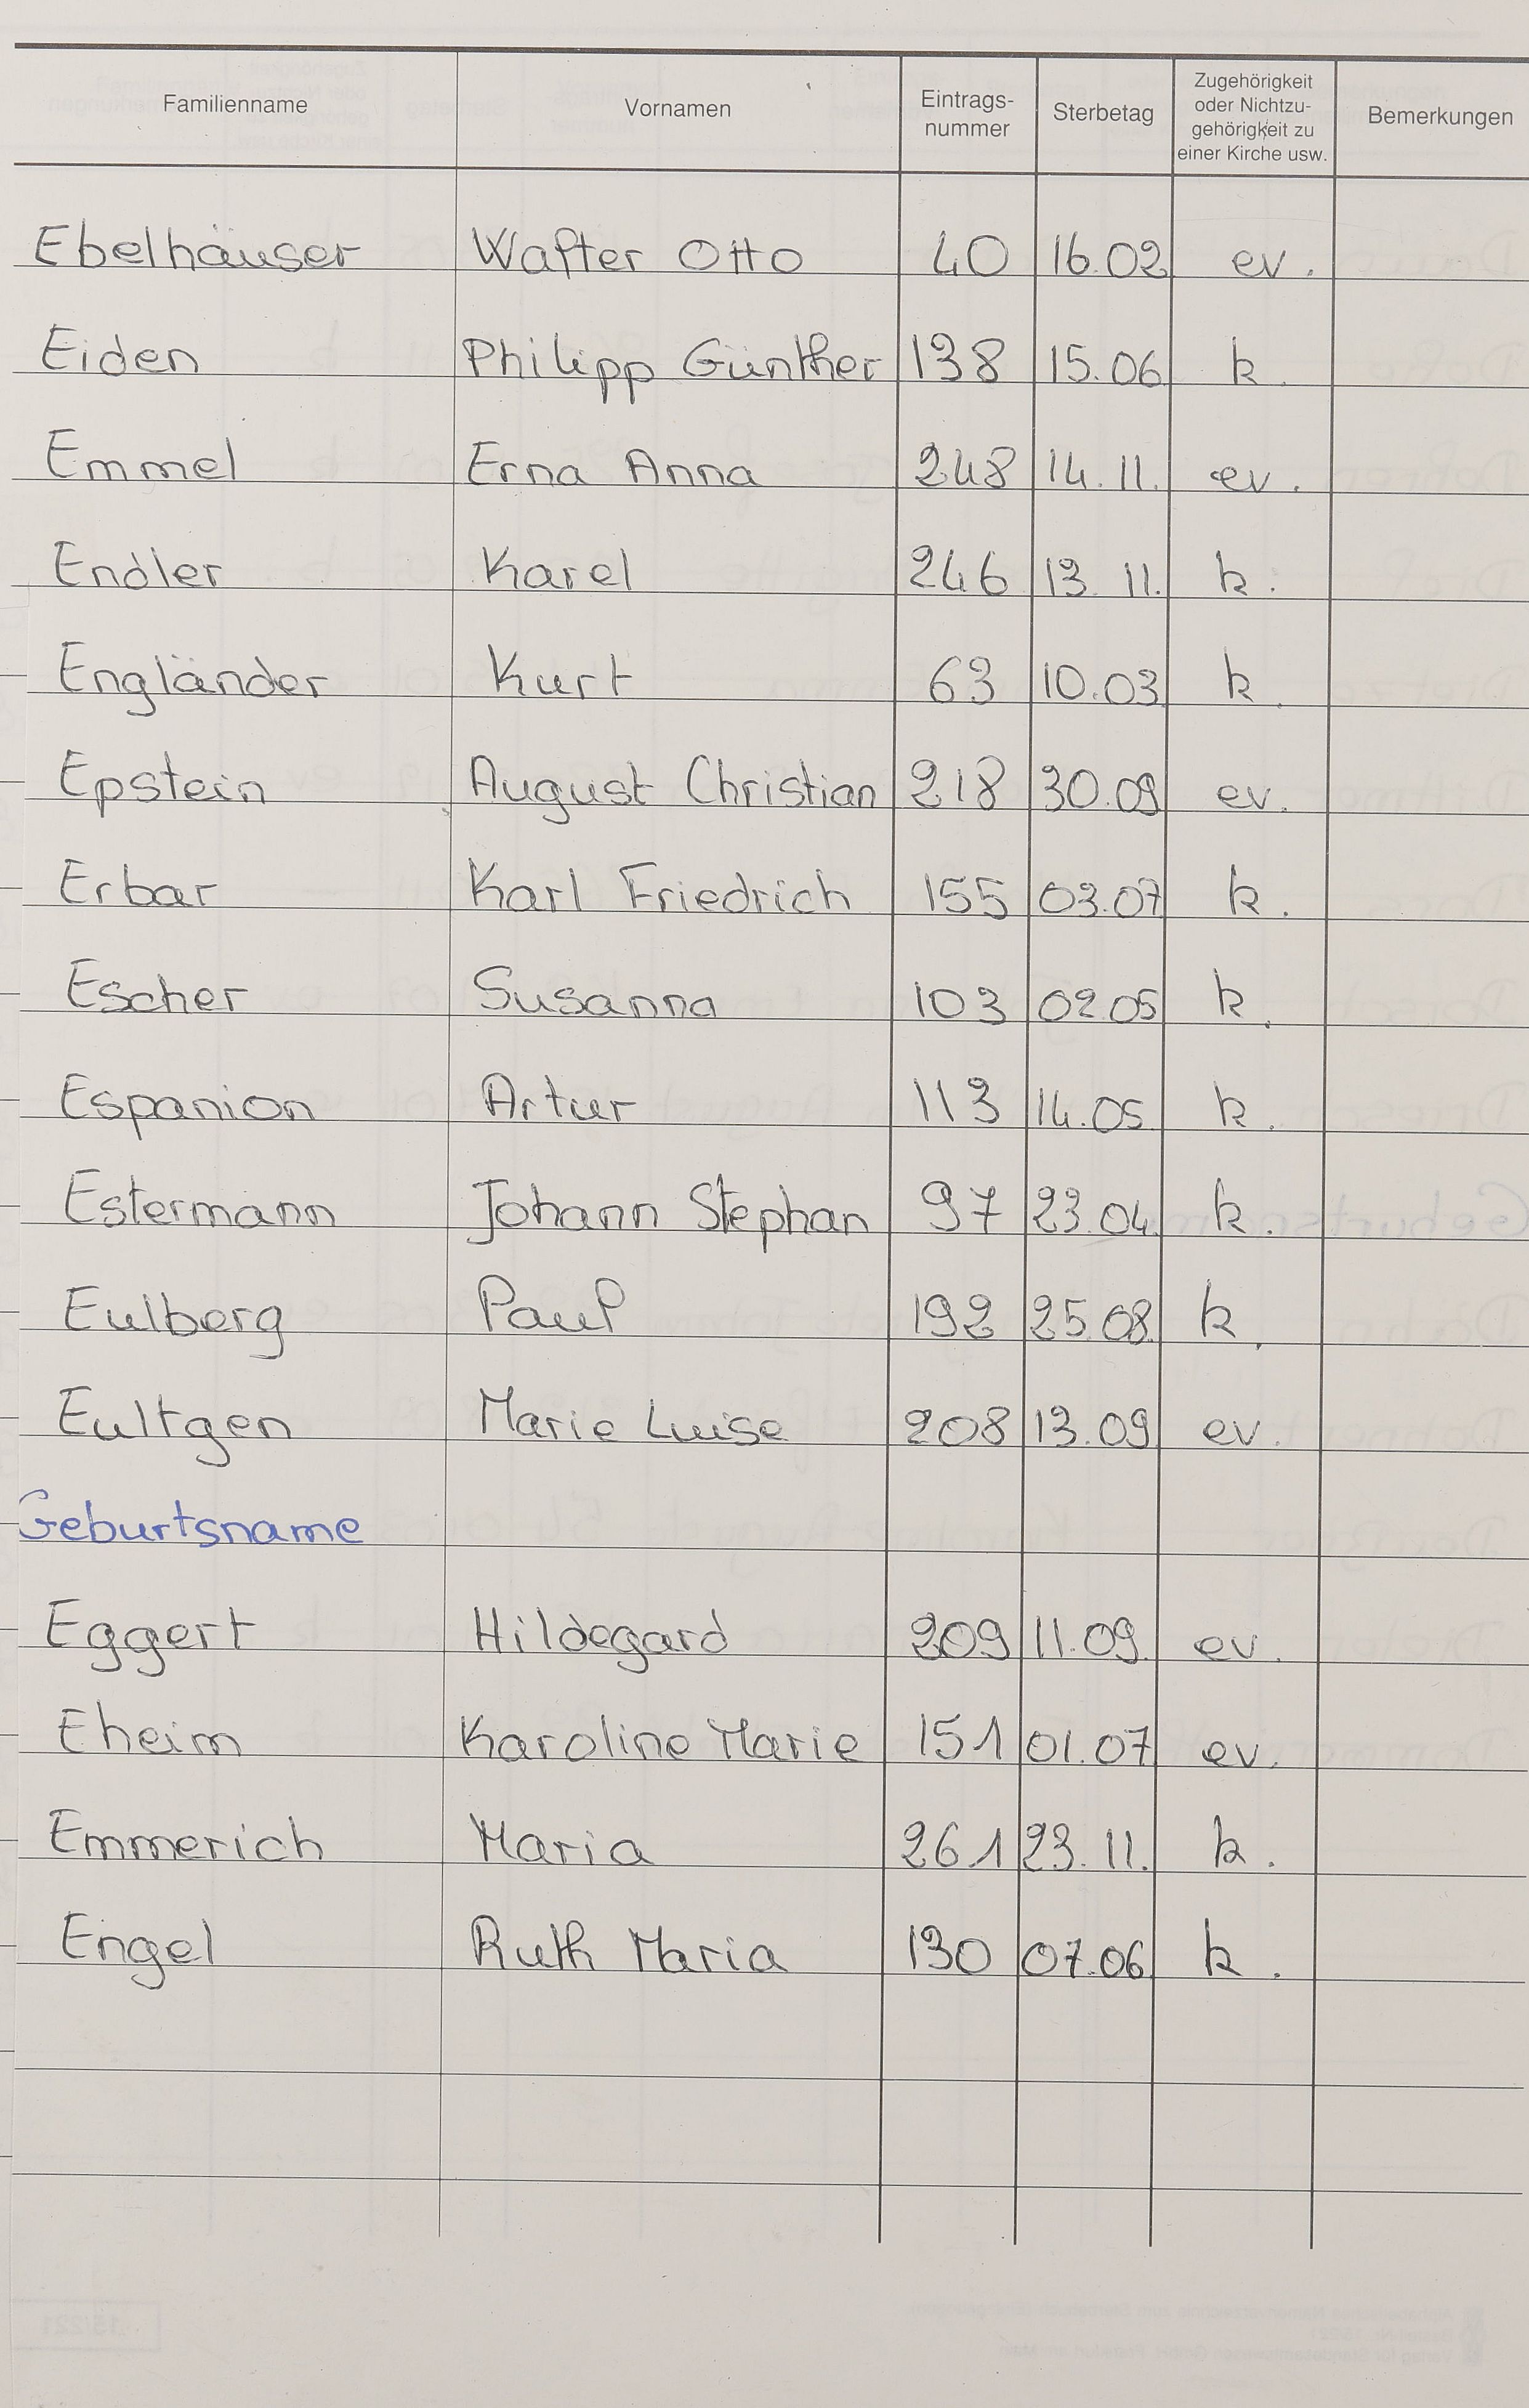 Familienname Vornamen Eintrags-nummer Sterbetag Zugehörigkeit oder Nichtzu-gehörigkeit zu einer Kirche usw. Bemerkungen
Ebelhäuser Walter Otto 40 16.02 ev.
Eiden Philipp Günther 138 15.06 k.
Emmel Erna Anna 248 14.11. ev.
Endler Karel 246 13.11. k.
Engländer Kurt 63 10.03 k.
Epstein August Christian 218 30.09 ev.
Erbar Karl Friedrich 155 03.07 k.
Escher Susanna 103 02.05 k.
Espanion Artur 113 14.05. k.
Estermann Johann Stephan 97 23.04. k.
Eulberg Paul 192 25.08. k.
Eultgen Marie Luise 208 13.09 ev.
Geburtsname
Eggert Hildegard 209 11.09. ev.
Eheim Karoline Marie 151 01.07 ev.
Emmerich Maria 261 23.11. k.
Engel Ruth Maria 130 07.06 k.